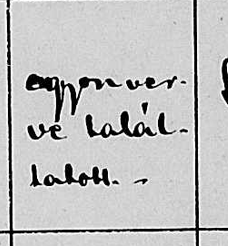 agyonver-
ve talál-
tatott. -